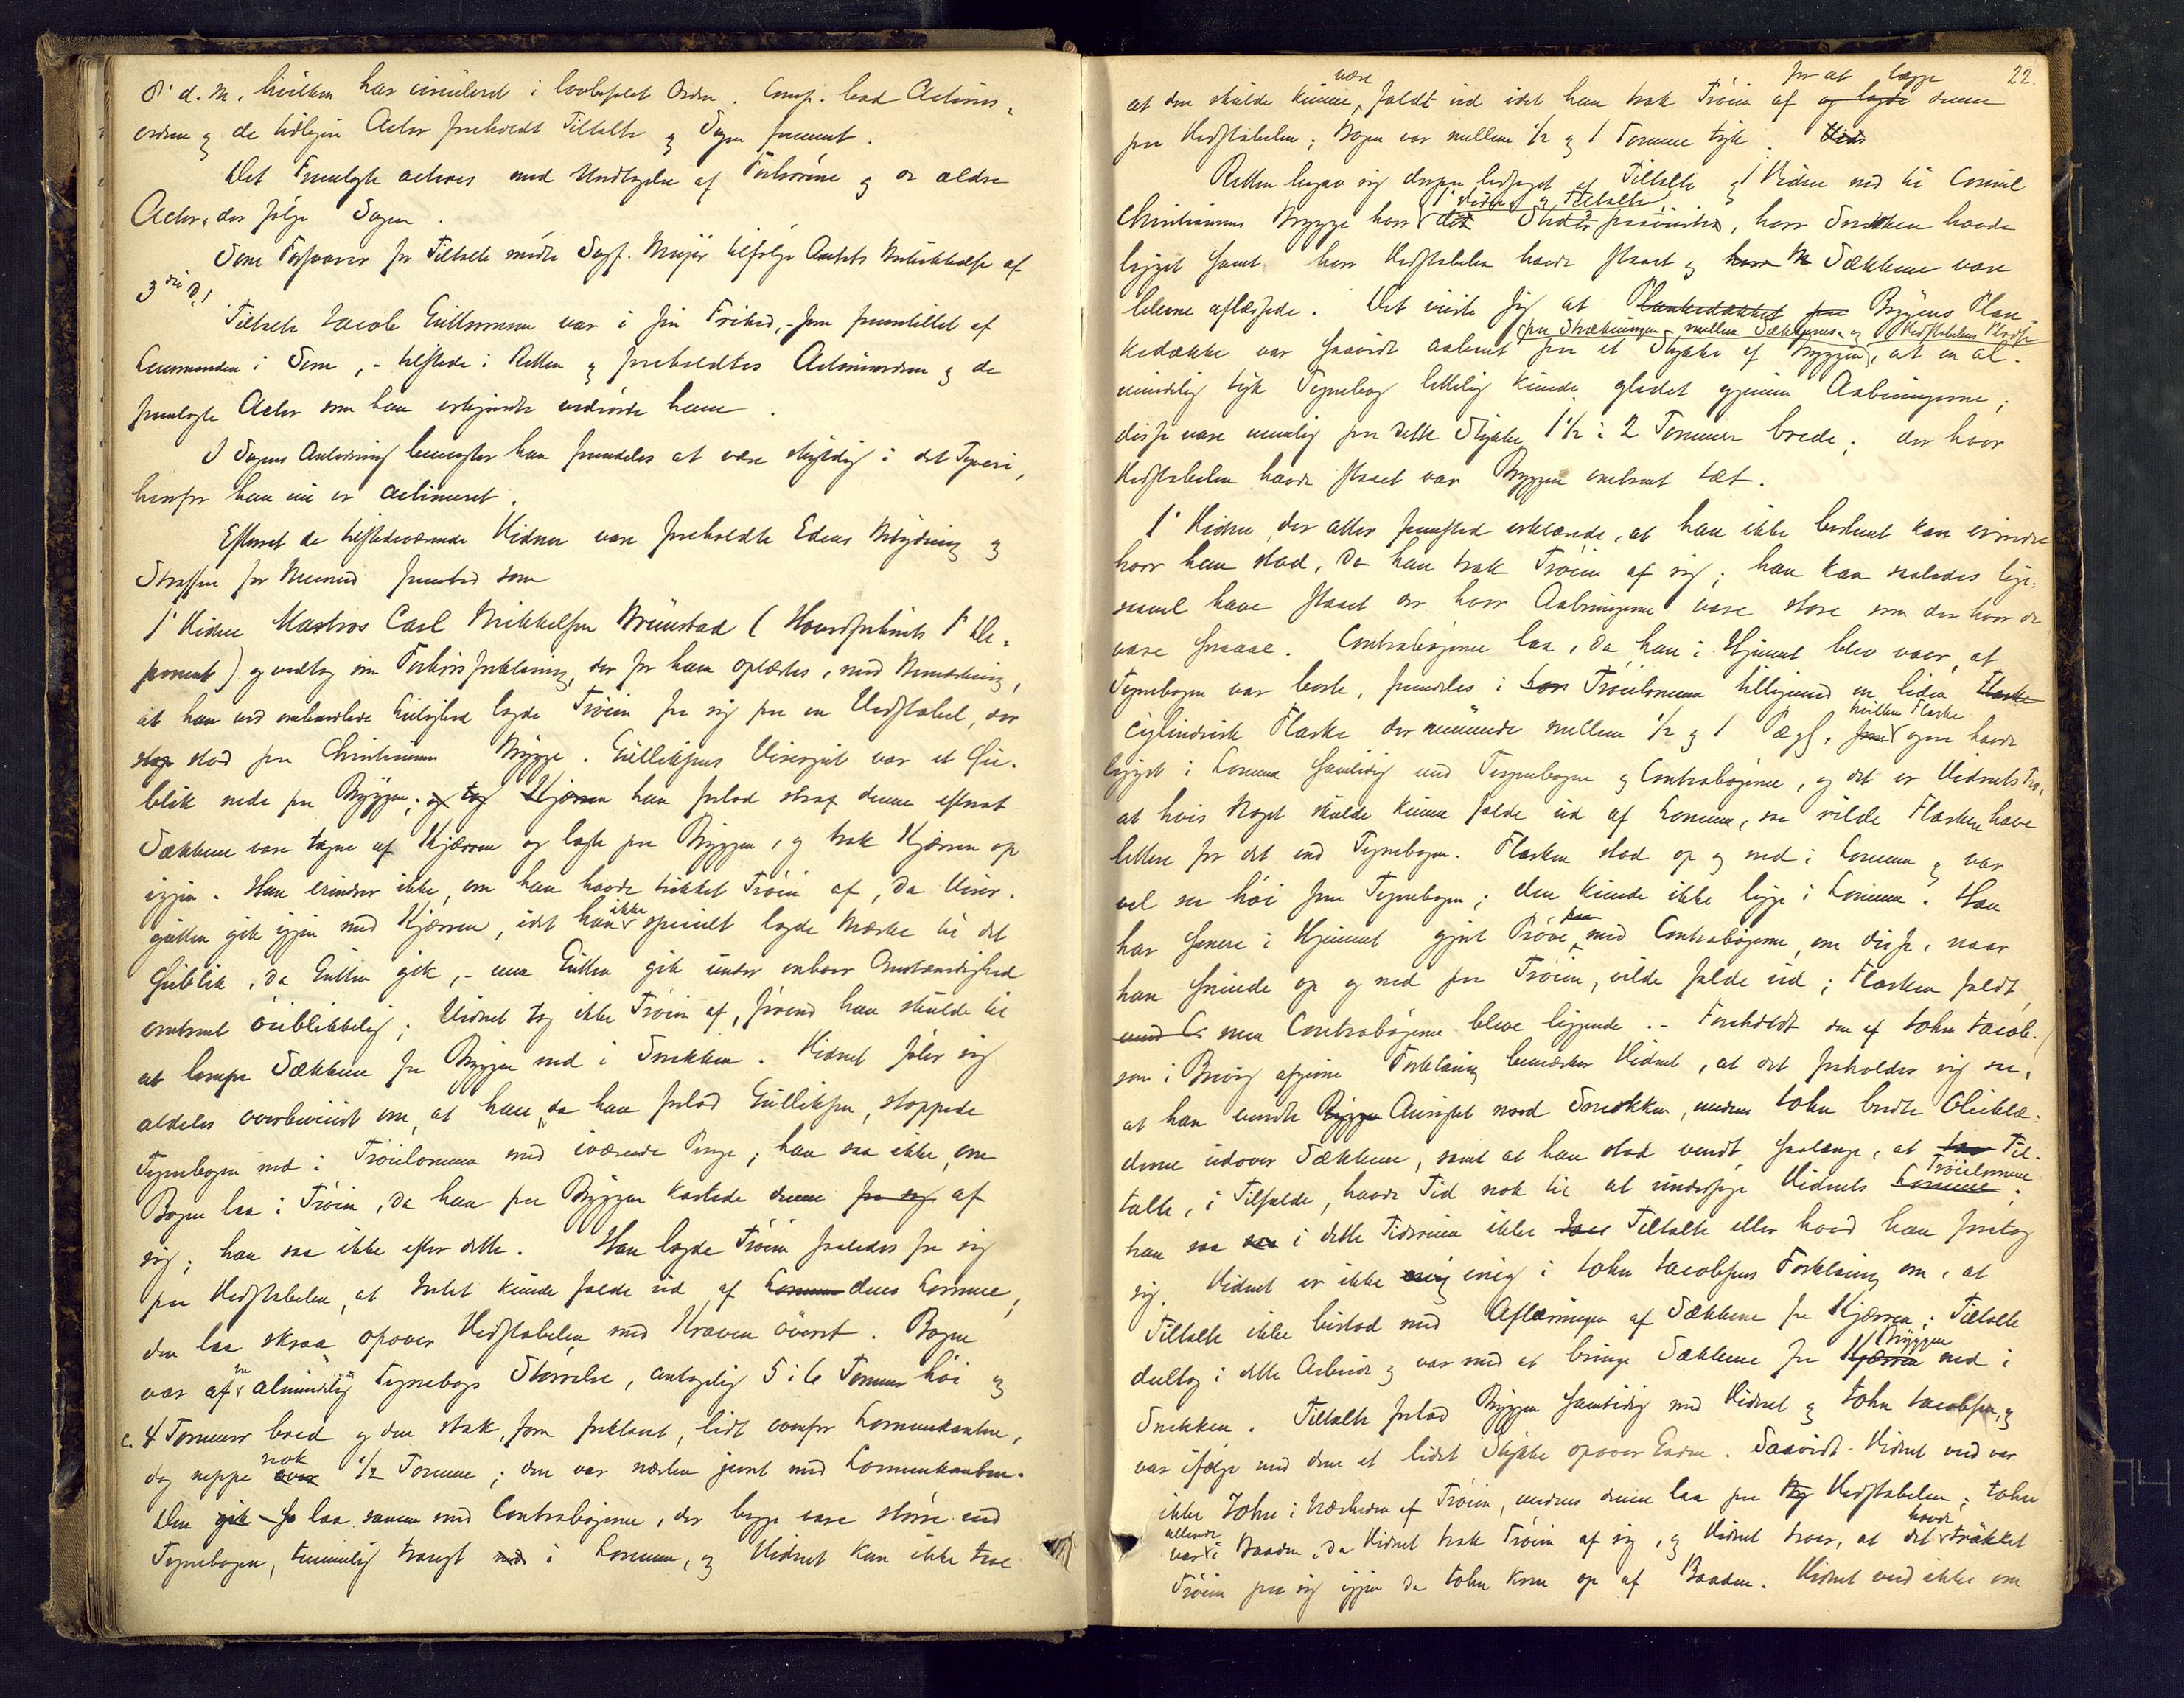 8' d. M. hvilken har circuleret i lovbefalet Orden. Comp. bad Actions-
ordren og de tidligere Acter foreholdt Tiltalte og Sagen fremmet.
Det Fremlagte acteres med Undtagelse af Forhørene og de ældre
Acter, der følge Sagen.
Som Forsvarer for Tiltalte mødte Sagf. Meyer tilfølge Amtets Beskikkelse af
3die d.
Tiltalte Jacob Guttormsen var i sin Frihed, - som fremstillet af
Lensmanden i Sem, - tilstede i Retten og foreholdtes Actionsordren og de
fremlagte Acter som han erkjendte vedrørte ham.
I Sagens Anledning benegter han fremdeles at være skyldig i det Tyveri,
hvorfor han nu er actioneret.
Efterat de tilstedeværende Vidner vare foreholdte Edens Betydning og
Straffen for Meened fremstod som
1' Vidne Matros Carl Mikkelsen Brunstad (Hovedforhørets 1' De-
ponent) og vedtog sin Forhørsforklaring, der for ham oplæstes, med Bemærkning,
at han ved omhandlede Leilighed lagde Trøien fra sig paa en Vedstabel, der
stod paa Christensens Brygge. Gulliksens Visergut var et Øie-
blik nede paa Bryggen; og tog Kjærren han forlod strax denne efterat
Sækkene vare tagne af Kjærren og lagte paa Bryggen, og trak Kjærren op
igjen. Han erindrer ikke, om han havde trukket Trøien af, da Viser-
gutten gik igjen med Kjærren, idet han ikke specielt lagde Mærke til det
Øieblik, da Gutten gik, - men Gutten gik under enhver Omstændighed
omtrent øieblikkelig; Vidnet tog ikke Trøien af, førend han skulde til
at lempe Sækkene fra Bryggen ned i Snekken. Vidnet føler sig
aldeles overbeviist om, at han, da han forlod Gulliksen, stoppede
Tegnebogen ned i Trøielommen med iværende Penge; han saa ikke, om
Bogen laa i Trøien, da han paa Bryggen kastede denne fra sig af
sig; han saa ikke efter dette. Han lagde Trøien saaledes fra sig
paa Vedstabelen, at Intet kunde falde ud af Lommen dens Lomme;
den laa skraa opover Vedstabelen med Kraven øverst. Bogen
var af en almindelig Tegnebogs Størrelse, antagelig 5 à 6 Tommer høi og
c. 4 Tommer bred og den stak, som forklaret, lidt ovenfor Lommekanten,
dog neppe over nok 1/2 Tomme; den var næsten jevnt med Lommekanten.
Den gik laa sammen med Contrabøgerne, der begge vare større end
Tegnebogen, temmelig trangt ned i Lommen, og Vidnet kan ikke troe
22.
at den skulde kunne være faldt ud idet han trak Trøien af og lagde for at lægge denne
paa Vedstabelen; Bogen var mellem 1/2 og 1 Tomme tyk. Vid
Retten begav sig derpaa ledsaget af Tiltalte og 1' Vidne ned til Consul
Christensens Brygge hvor 1' Vidne og Tiltalte det Sted paaviste, hvor Snekken havde
ligget samt hvor Vedstabelen havde staaet og hvor Sækkene vare
blevne aflæssede. Det viste sig at Plankedækket paa Bryggens Plan-
kedække var saavidt aabent paa et Stykke af Bryggen, paa Strækningen mellem Sækkenes og Vedstabelens Plads, at en al-
mindelig tyk Tegnebog lettelig kunde glidet gjennem Aabningerne;
disse vare nemlig paa dette Stykke 1 1/2 à 2 Tommer brede; der hvor
Vedstabelen havde staaet var Bryggen omtrent tæt.
1' Vidne, der atter fremstod erklærede, at han ikke bestemt kan erindre
hvor han stod, da han trak Trøien af sig; han kan saaledes lige-
saavel have staaet der hvor Aabningerne vare store som der hvor de
vare smaae. Contrabøgerne laa, da han i Hjemmet blev vaer, at
Tegnebogen var borte, fremdeles i Trøielommen tilligemed en liden Flaske
cylindrisk Flaske der rummede mellem 1/2 og 1 Pægl, hvilken Flaske ogsaa havde
ligget i Lommen samtidig med Tegnebogen og Contrabøgerne, og det er Vidnets Tro,
at hvis Noget skulde kunne falde ud af Lommen, saa vilde Flasken have
lettere for det end Tegnebogen. Flasken stod op og ned i Lommen og var
vel saa høi som Tegnebogen; den kunde ikke ligge i Lommen. Han
har senere i Hjemmet gjort Prøve paa med Contrabøgerne, om disse, naar
han snuede op og ned paa Trøien, vilde falde ud; Flasken faldt,
men C. men Contrabøgerne bleve liggende. - Foreholdt den af John Jacob-
sen i Brevig afgivne Forklaring bemærker Vidnet, at det forholder sig saa,
at han vendte Ryggen Ansigtet mod Snekken, medens John bredte Olieklæ-
derne udover Sækkene, samt at han stod vendt saalænge, at Til-
talte, i Tilfælde, havde Tid nok til at undersøge Vidnets Lomme Trøielomme;
han saa i dette Tidsrum ikke Tiltalte eller hvad han foretog
sig. Vidnet er ikke enig i John Jacobsens Forklaring om, at
Tiltalte ikke bistod med Aflæsningen af Sækkene fra Kjærren; Tiltalte
deeltog i dette Arbeide og var med at bringe Sækkene fra Kjærren Bryggen ned i
Snekken. Tiltalte forlod Bryggen samtidig med Vidnet og John Jacobsen, og
var ifølge med dem et lidet Stykke opover Gaden. Saavidt Vidnet ved var
ikke John i Nærheden af Trøien, medens denne laa paa Vedstabelen; John
var allerede i Baaden, da Vidnet trak Trøien af sig, og Vidnet troer, at det havde trukket
Trøien paa sig igjen da John kom op af Baaden. Vidnet ved ikke om